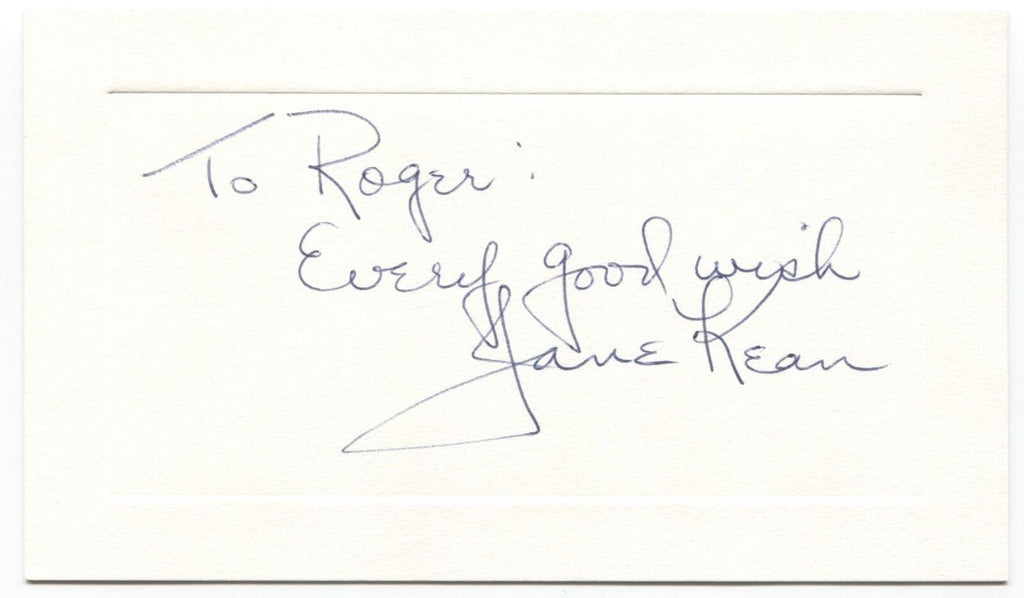 To Roger:
Every good wish
Jane Kean